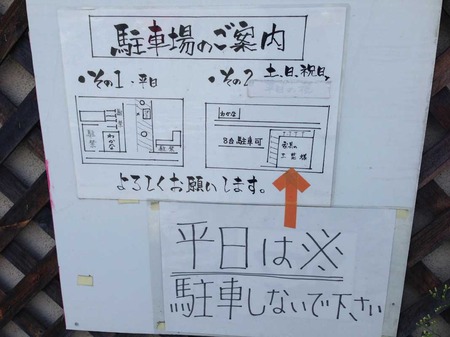 駐車場のご案内
・その1、平日
・その2 土、日、祝日、
駐禁
わかな
駐禁
わかな
8台駐車可
よろしくお願いします。
平日は※
駐車しないで下さい